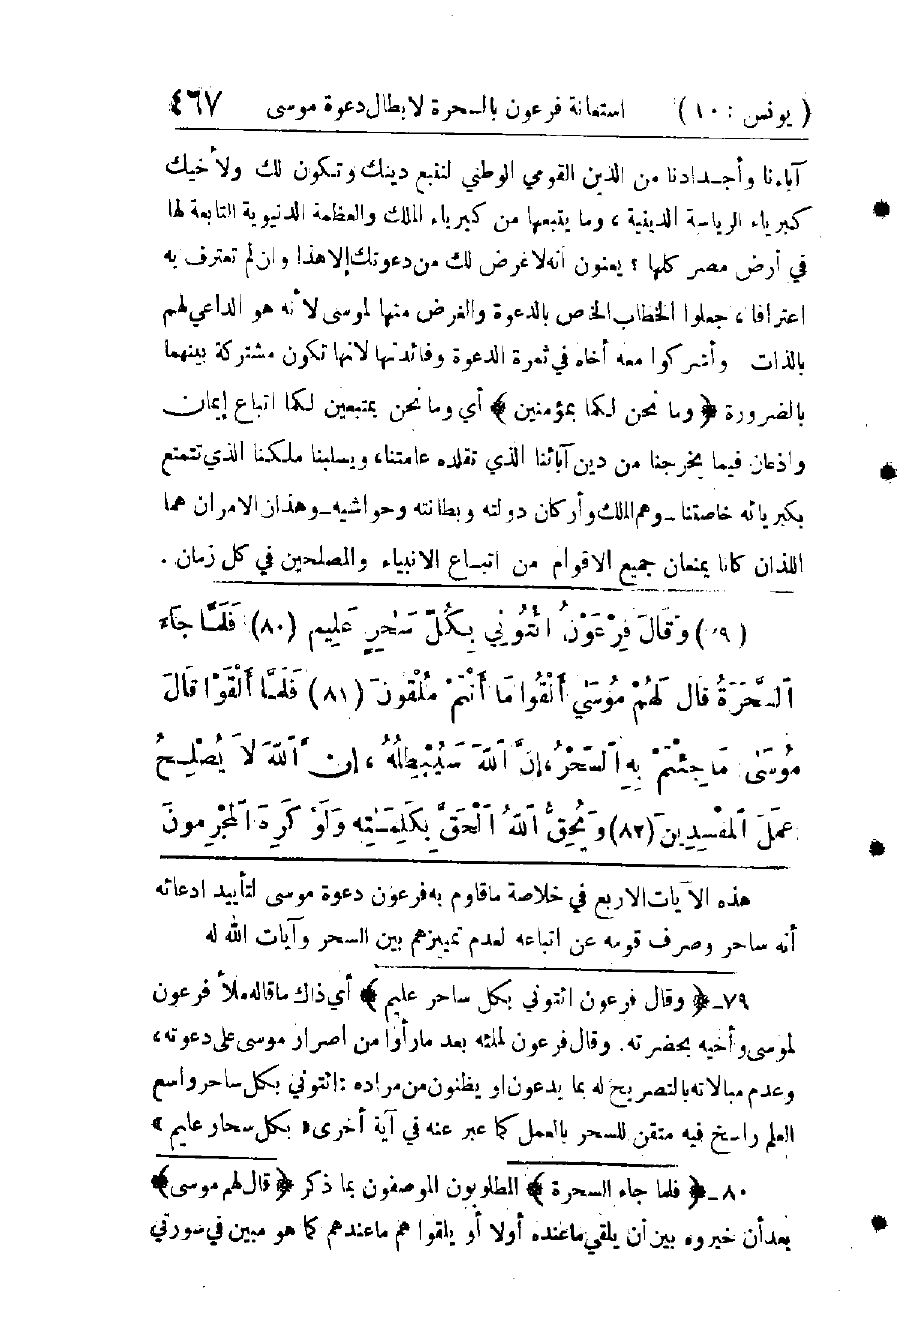 ( يونس : ١٠ ) استعانة فرعون بالسحرة لابطال دعوة موسى ٤٦٧
آباءنا وأجدادنا من الدين القومي الوطني لنتبع دينك وتكون لك ولأخيك
كبرياء الرياسة الدينية ، وما يتبعها من كبرياء الملك والعظمة الدنيوية التابعة لها
في أرض مصر كلها ؟ يعنون أنه لا غرض لك من دعوتك إلا هذا وان لم تعترف به
اعترافا ، جعلوا الخطاب الخاص بالدعوة والغرض منها لموسى لأنه هو الداعي لهم
بالذات وأشركوا معه أخاه في ثمرة الدعوة وفائدتها لانها تكون مشتركة بينهما
بالضرورة ﴿ وما نحن لكما بمؤمنين ﴾ أي وما نحن بمتبعين لكما اتباع إيمان
واذعان فيما يخرجنا من دين آبائنا الذي تقلده عامتنا، ويسلبنا ملكنا الذي تتمتع
بكبريائه خاصتنا ـ وهم الملك وأركان دولته وبطانته وحواشيه ـ وهذان الامران هما
اللذان كانا يمنعان جميع الاقوام من اتباع الانبياء والمصلحين في كل زمان .
(٧٩) وَقَالَ فِرْعَوْنُ ائْتُونِي بِكُلِّ سَٰحِرٍ عَلِيمٍ (٨٠) فَلَمَّا جَاءَ
ٱلسَّحَرَةُ قَالَ لَهُمْ مُوسَىٰ أَلْقُوا مَا أَنْتُمْ مُلْقُونَ (٨١) فَلَمَّا أَلْقَوْا قَالَ
مُوسَىٰ مَا جِئْتُمْ بِهِ ٱلسِّحْرُ، إِنَّ ٱللَّهَ سَيُبْطِلُهُ ، إِنَّ ٱللَّهَ لَا يُصْلِحُ
عَمَلَ ٱلْمُفْسِدِينَ (٨٢) وَيُحِقُّ ٱللَّهُ ٱلْحَقَّ بِكَلِمَٰتِهِ وَلَوْ كَرِهَ ٱلْمُجْرِمُونَ
هذه الآيات الاربع في خلاصة ما قاوم به فرعون دعوة موسى لتأييد ادعائه
أنه ساحر وصرف قومه عن اتباعه لعدم تمييزهم بين السحر وآيات الله له
٧٩ـ ﴿ وقال فرعون ائتوني بكل ساحر عليم ﴾ أي ذاك ما قاله ملأ فرعون
لموسى وأخيه بحضرته. وقال فرعون لملئه بعد ما رأوا من اصرار موسى على دعوته،
وعدم مبالاته بالتصريح له بما يدعون او يظنون من مراده : ائتوني بكل ساحر واسع
العلم راسخ فيه متقن للسحر بالعمل كما عبر عنه في آية أخرى « بكل سحار عليم »
٨٠ـ ﴿ فلما جاء السحرة ﴾ المطلوبون الموصفون بما ذكر ﴿ قال لهم موسى ﴾
بعد أن خيروه بين أن يلقي ما عنده أولا أو يلقوا هم ما عندهم كما هو مبين في سورتي